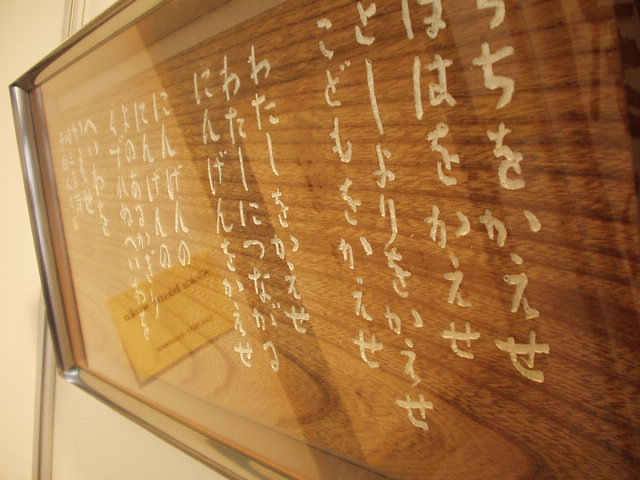 ちちをかえせ
ははをかえせ
としよりをかえせ
こどもをかえせ
わたしをかえせ
わたしにつながる
にんげんをかえせ
にんげんの
にんげんのよのあるかぎり
くずれぬへいわを
へいわを
かえせ